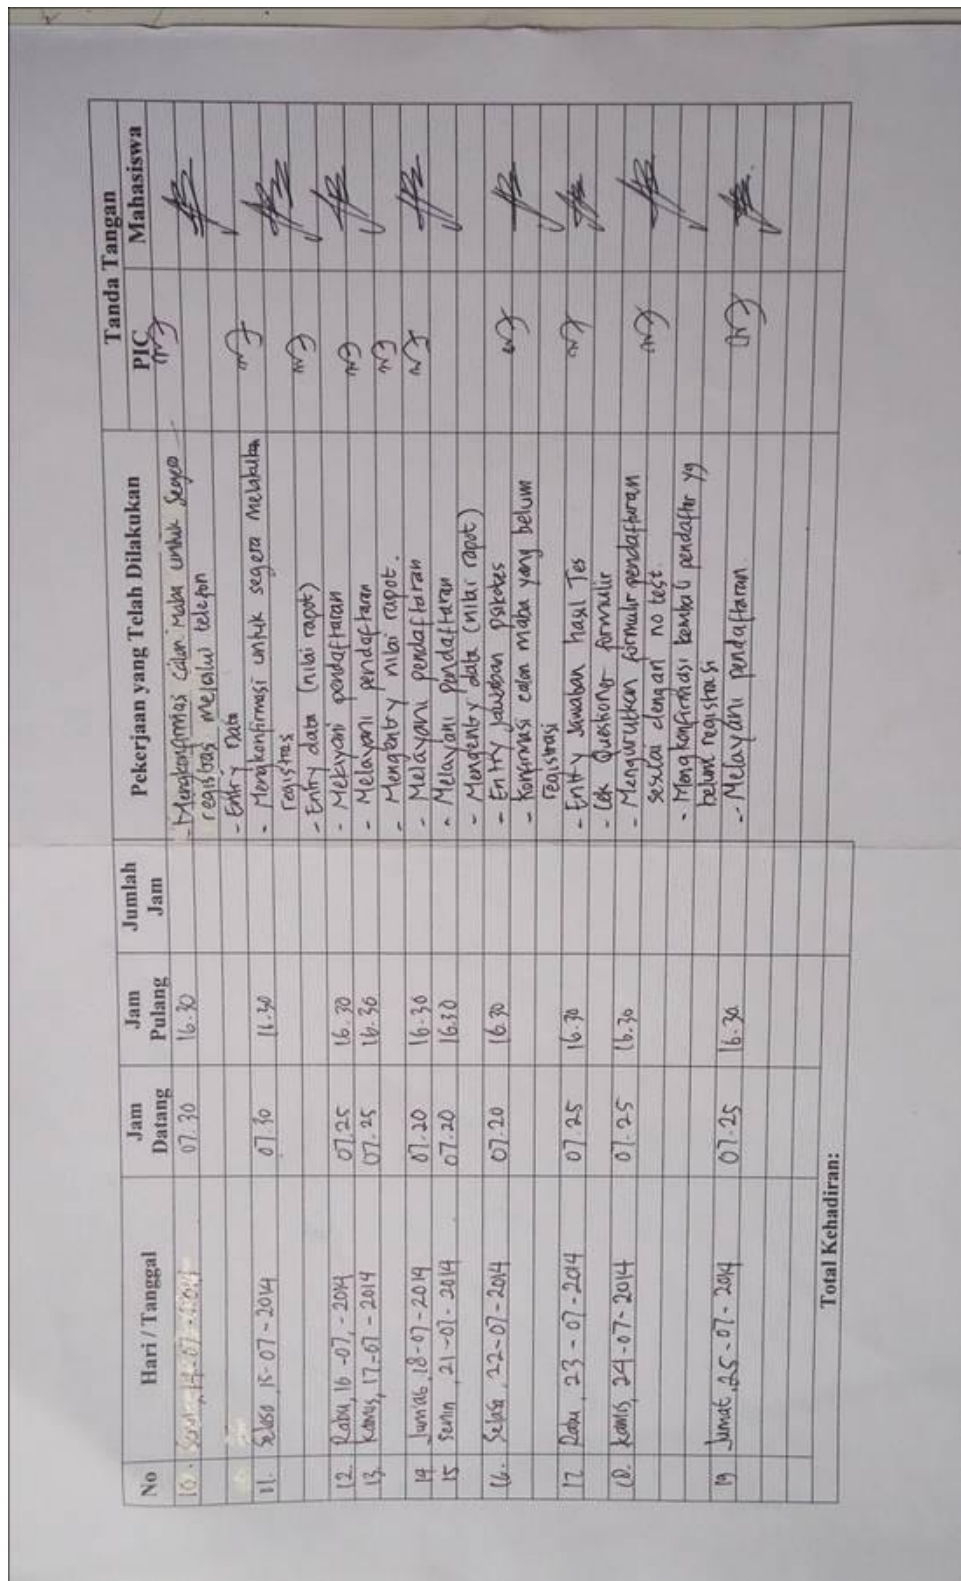 No Hari / Tanggal Jam Datang Jam Pulang Jumlah Jam Pekerjaan yang Telah Dilakukan Tanda Tangan
PIC Mahasiswa
10. 14-07-2014 07.30 16.30 - Mengkonfirmasi calon maba untuk segera
registrasi melalui telefon
- Entry Data
11. Selasa, 15-07-2014 07.30 16.30 - Mengkonfirmasi untuk segera melakukan
registras
- Entry data (nilai rapot)
12. Rabu, 16-07-2014 07.25 16.30 - Melayani pendaftaran
13. Kamis, 17-07-2014 07.25 16.30 - Melayani pendaftaran
- Mengentry nilai rapot.
14 Jum'at, 18-07-2014 07.20 16.30 - Melayani pendaftaran
15 Senin, 21-07-2014 07.20 16.30 - Melayani pendaftaran
- Mengentry data (nilai rapot)
16. Selasa, 22-07-2014 07.20 16.30 - Entry jawaban psikotes
- Konfirmasi calon maba yang belum
registrasi
17. Rabu, 23-07-2014 07.25 16.30 - Entry jawaban hasil Tes
- Cek Questioner formulir
18. Kamis, 24-07-2014 07.25 16.30 - Mengurutkan formulir pendaftaran
sesuai dengan no test.
- Mengkonfirmasi kembali pendaftar yg
belum registrasi
19 Jumat, 25-07-2014 07.25 16.30 - Melayani pendaftaran
Total Kehadiran: